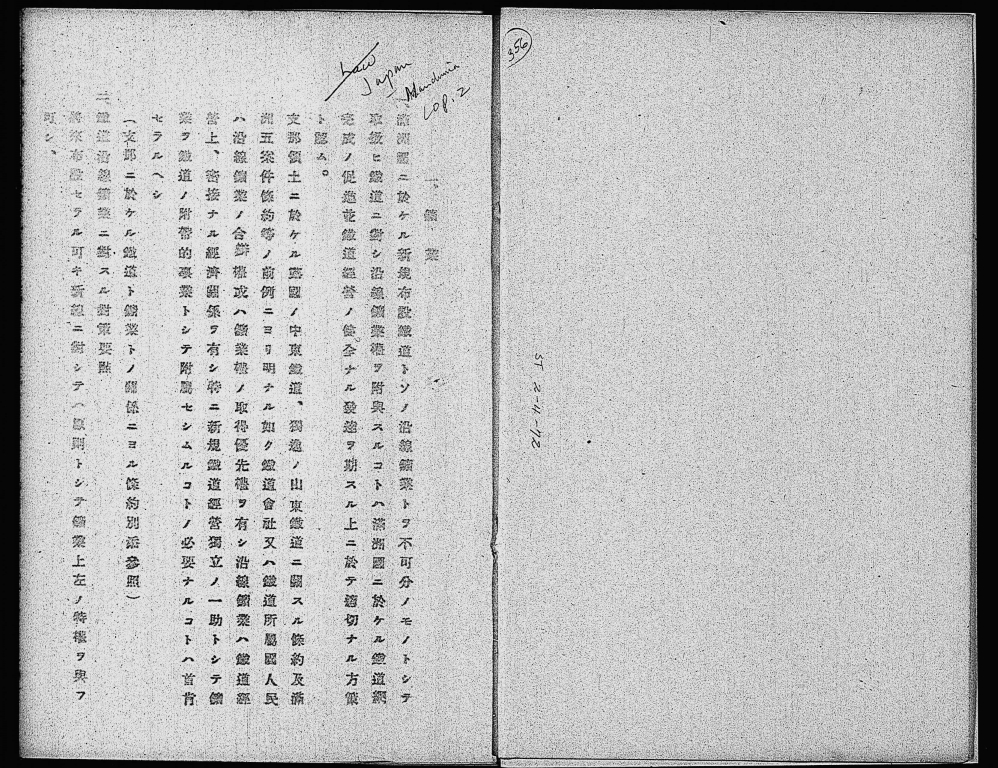 356
Law
Japan
Manchuria
cop. 2
一、鑛業
滿洲國ニ於ケル新規布設鐵道トソノ沿線鑛業トヲ不可分ノモノトシテ
取扱ヒ鐵道ニ對シ沿線鑛業權ヲ附與スルコトハ滿洲國ニ於ケル鐵道網
完成ノ促進並鐵道經營ノ健全ナル發達ヲ期スル上ニ於テ適切ナル方策
ト認ム。
支那領土ニ於ケル露國ノ中東鐵道、獨逸ノ山東鐵道ニ關スル條約及滿
洲五案件條約等ノ前例ニヨリ明ナル如ク鐵道會社又ハ鐵道所屬國人民
ハ沿線鑛業ノ合辦權或ハ鑛業權ノ取得優先權ヲ有シ沿線鑛業ハ鐵道經
營上、密接ナル經濟關係ヲ有シ特ニ新規鐵道經營獨立ノ一助トシテ鑛
業ヲ鐵道ノ附帶的事業トシテ附屬セシムルコトノ必要ナルコトハ首肯
セラルヘシ
(支那ニ於ケル鐵道ト鑛業トノ關係ニヨル條約別添參照)
二、鐵道沿線鑛業ニ對スル對策要點
將來布設セラル可キ新線ニ對シテハ原則トシテ鑛業上左ノ特權ヲ與フ
可シ、
ST 2-11-42